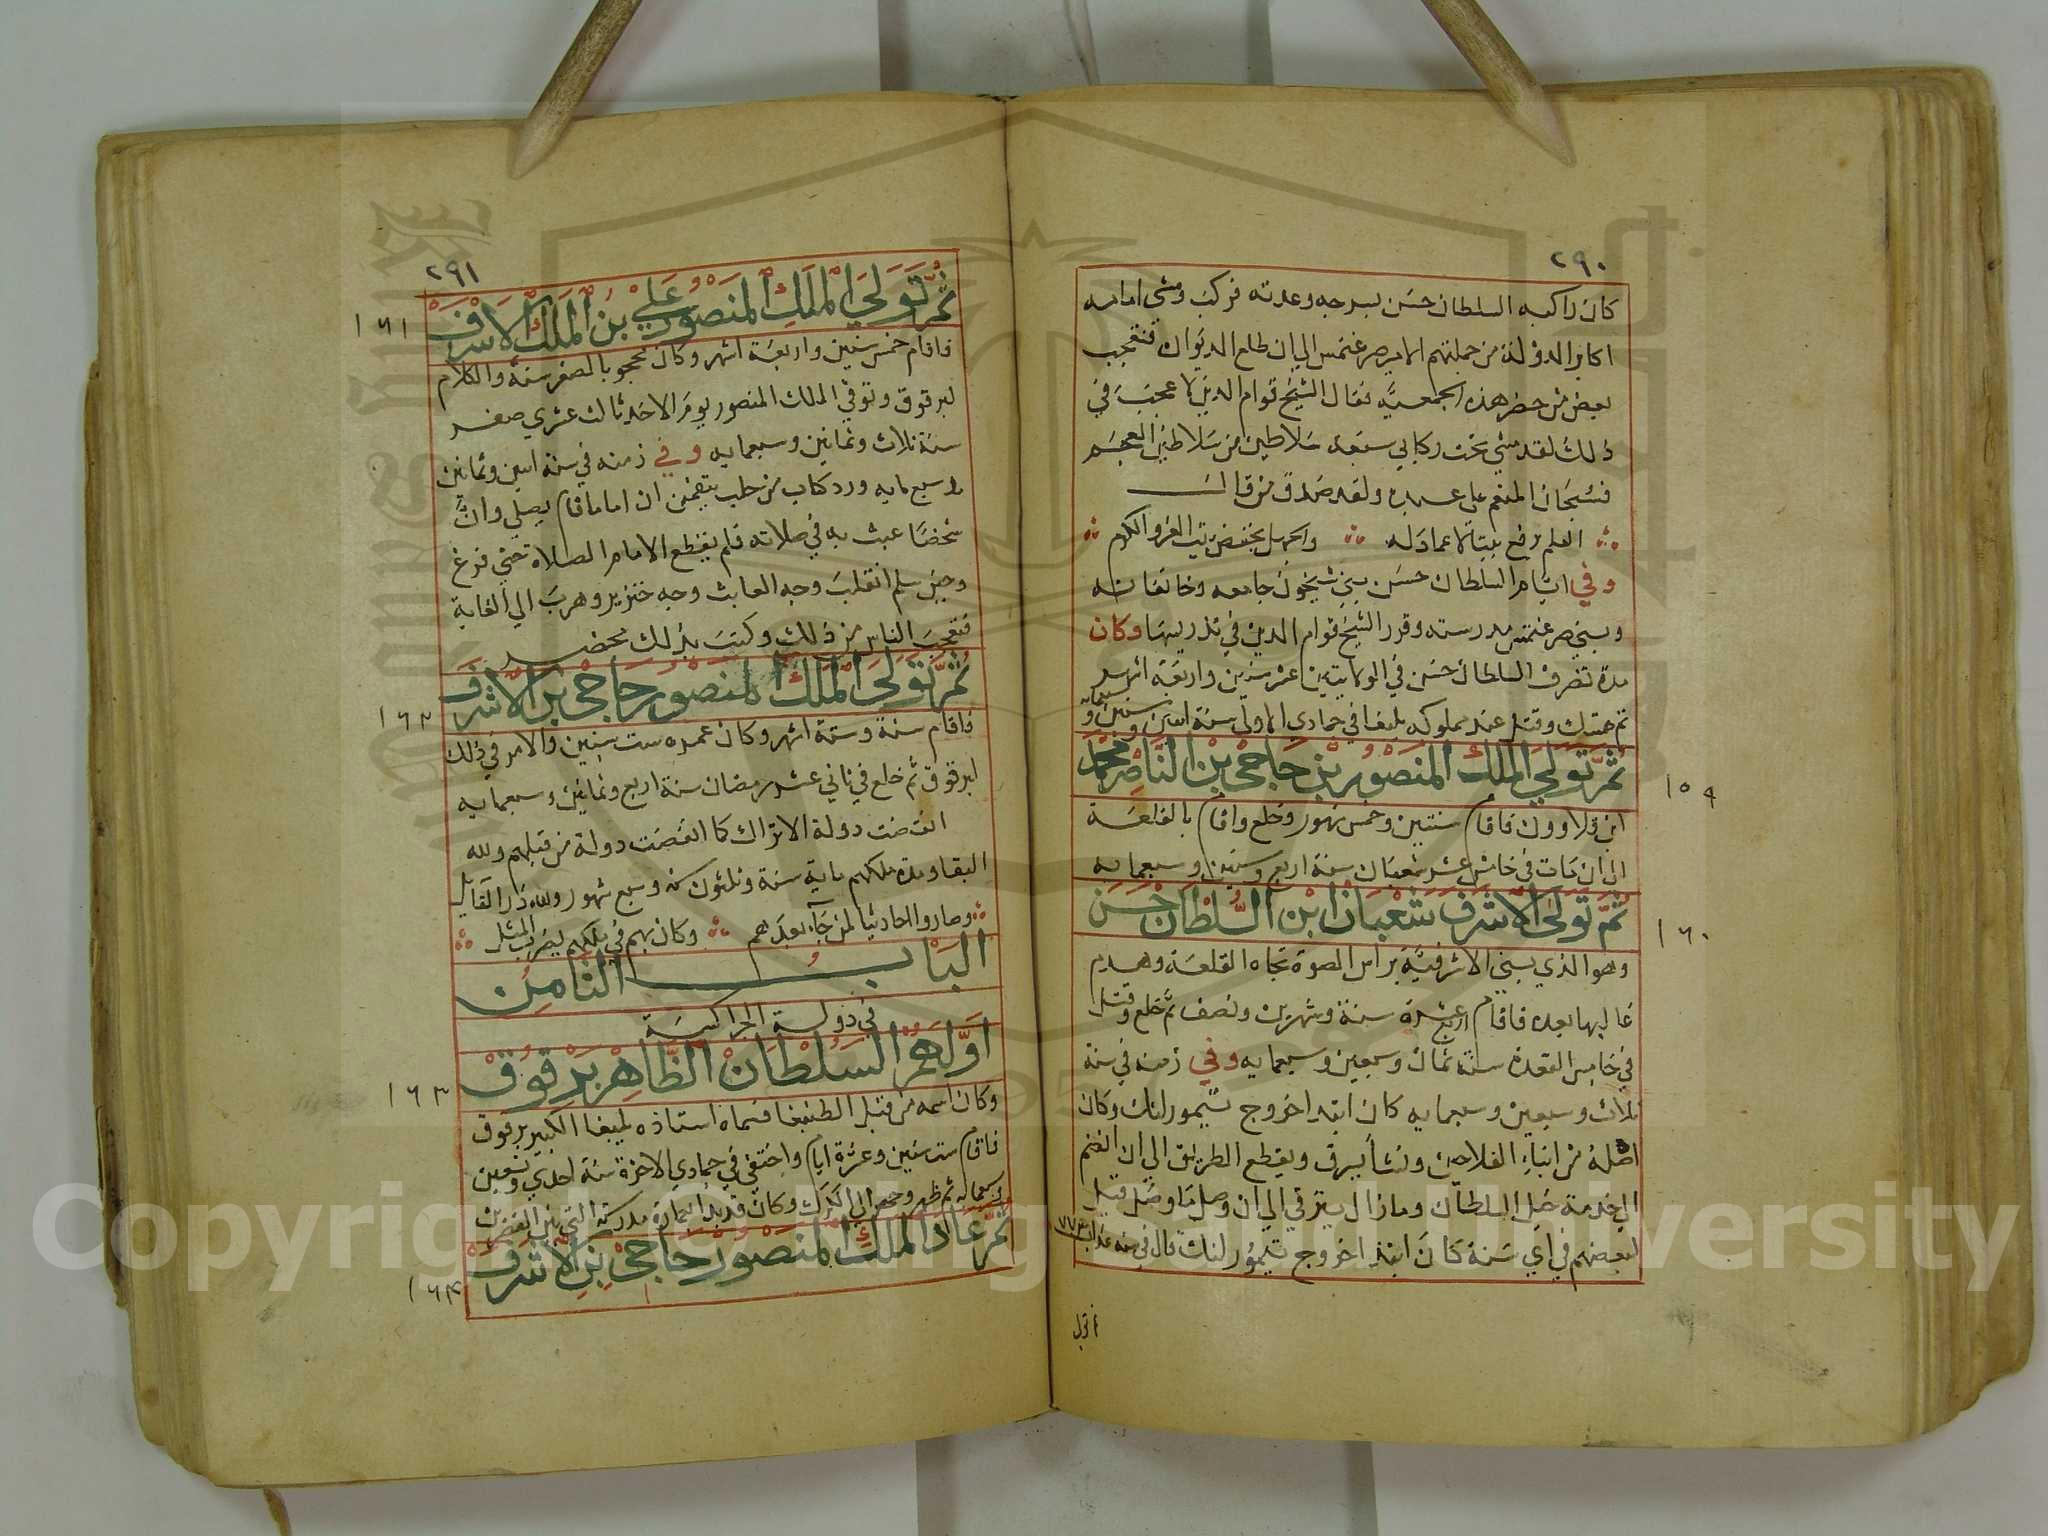 ٢٩٠
كان راكبه السلطان حسن بسرجه وعدته فركب ومشى امامه
اكابر الدولة من جملتهم الامير صرغتمس الى ان طلع الديوان فتعجب
بعض من حضر هذه الجمعيه فقال الشيخ قوام الدين لا عجب في
ذلك لقد مشى تحت ركابي سبعه سلاطين من سلاطين العجم
فسبحان المنعم على عبيده ولقد صدق من قال
العلم يرفع بيتا لا عماد له والجهل يخفض بيت العز والكرم
وفي ايام السلطان حسن بنى شيخون جامعه وخانقانه
وبنى صرغتمس مدرسته وقرر الشيخ قوام الدين في تدريسها وكان
مدة تصرف السلطان حسن في الولايتين عشر سنين واربعة اشهر
ثم مسك وقتل عند مملوكه يلبغا في جمادي الاولى سنة اثنين وستين وسبعمايه
ثم تولي الملك المنصور بن حاجي بن الناصر محمد
١٥٩
ابن قلاوون فاقام سنتين وخمس شهور وخلع واقام بالقلعة
الى ان مات في خامس عشر شعبان سنة اربع وستين وسبعمايه
ثم تولى الاشرف شعبان ابن السلطان حسن
١٦٠
وهو الذي بنى الاشرفية براس الصوة تجاه القلعة وهدم
غالبها بعده فاقام اربع عشرة سنة وشهرين ونصف ثم خلع وقتل
في خامس القعدة سنة ثمان وسبعين وسبعمايه وفي زمنه في سنة
ثلاث وسبعين وسبعمايه كان ابتدا خروج تيمور لنك وكان
اصله من ابناء الفلاحين ونشأ يسرق ويقطع الطريق الى ان انضم
الى خدمة خيل السلطان وما زال يترقي الى ان وصل ما وصل قيل
لبعضهم في اي سنة كان ابتدا خروج تيمور لنك قال في سنة عذاب ٧٧٣
٢٩١
ثم تولى الملك المنصور علي بن الملك الاشرف
١٦١
فاقام خمس سنين واربعة اشهر وكان محجوبا لصغر سنه والكلام
لبرقوق وتوفي الملك المنصور يوم الاحد ثالث عشري صفر
سنة ثلاث وثمانين وسبعمايه وفي زمنه في سنة اثنين وثمانين
وسبعمايه ورد كتاب من حلب يتضمن ان اماما قام يصلي وان
شخصا عبث به في صلاته فلم يقطع الامام الصلاة حتى فرغ
وحين سلم انقلب وجه العابث وجه خنزير وهرب الى الغابة
فتعجب الناس من ذلك وكتب بذلك محضر
ثم تولى الملك المنصور حاجي بن الاشرف
١٦٢
فاقام سنة وستة اشهر وكان عمره ست سنين والامر في ذلك
لبرقوق ثم خلع في ثاني عشر رمضان سنة اربع وثمانين وسبعمايه
انقضت دولة الاتراك كما انقضت دولة من قبلهم ولله
البقا ومدة ملكهم ماية سنة وثلثون سنة وسبع شهور ولله در القايل
وصاروا احاديثا لمن جاء بعدهم وكان بهم في ملكهم يضرب المثل
الباب الثامن
في دولة الجراكسة
اولهم السلطان الظاهر برقوق
١٦٣
وكان اسمه من قبل الطنبغا فسماه استاذه يلبغا الكبير برقوق
فاقام ست سنين وعشرة ايام واختفى في جمادي الاخرة سنة احدي وتسعين
وسبعمايه ثم ظهر وحصر الى الكرك وكان قد بدا بعمارة مدرسته التي بين القصرين
ثم عاد الملك المنصور حاجي بن الاشرف
١٦٤
Copyright © King Saud University